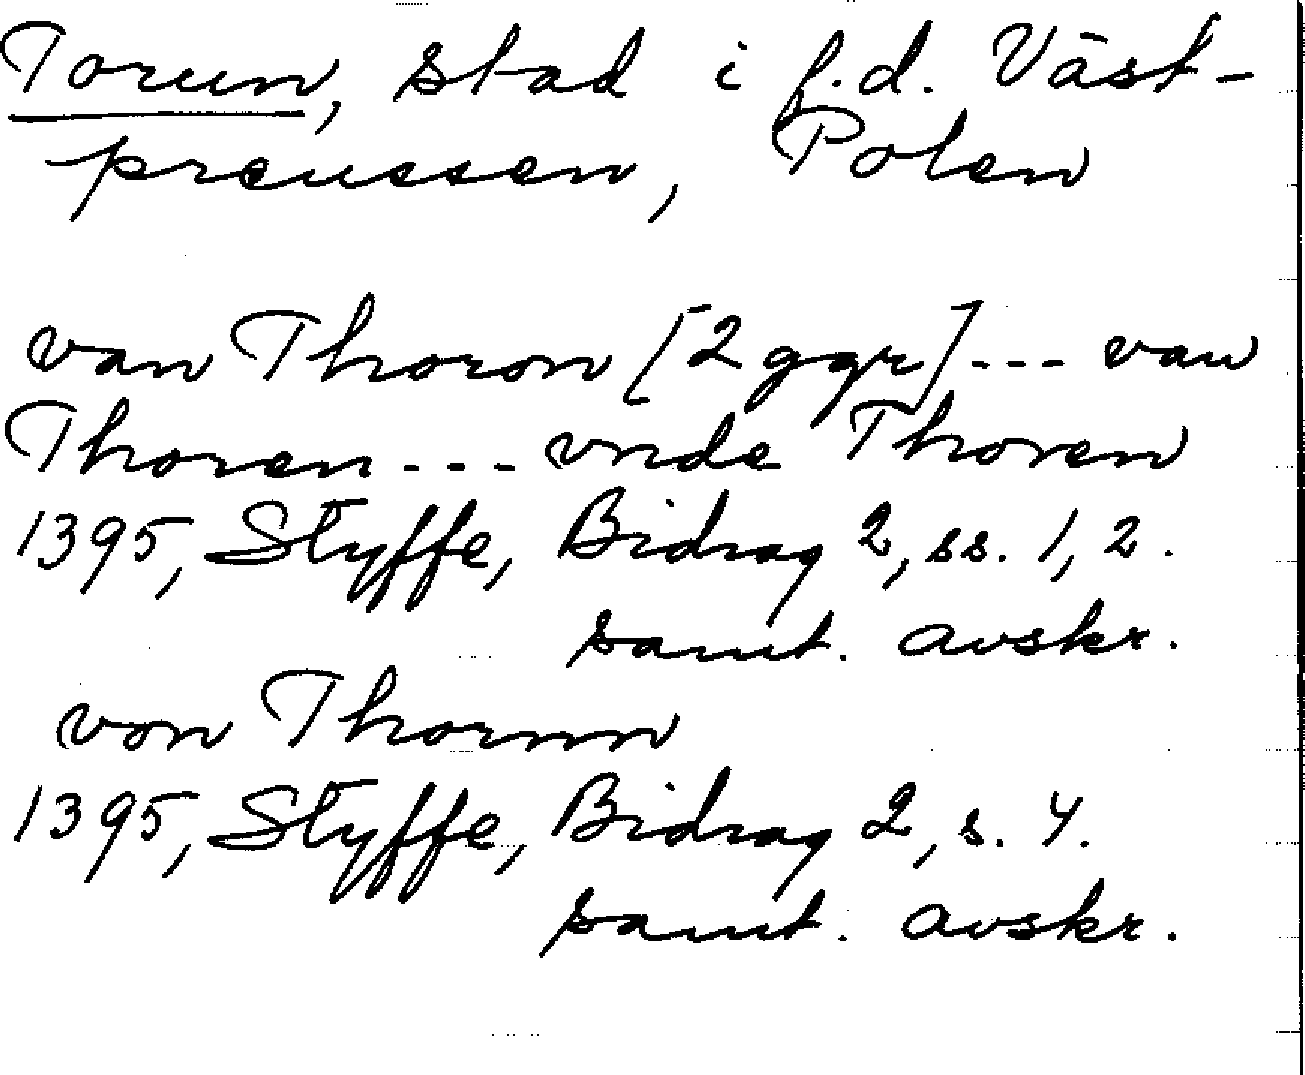 Torun, stad i f.d. Väst-
preussen, Polen
van Thoron [2 ggr] --- van
Thoren --- vnde Thoren
1395, Styffe, Bidrag 2, ss. 1, 2.
samt. avskr.
von Thornn
1395, Styffe, Bidrag 2, s. 4.
samt. avskr.